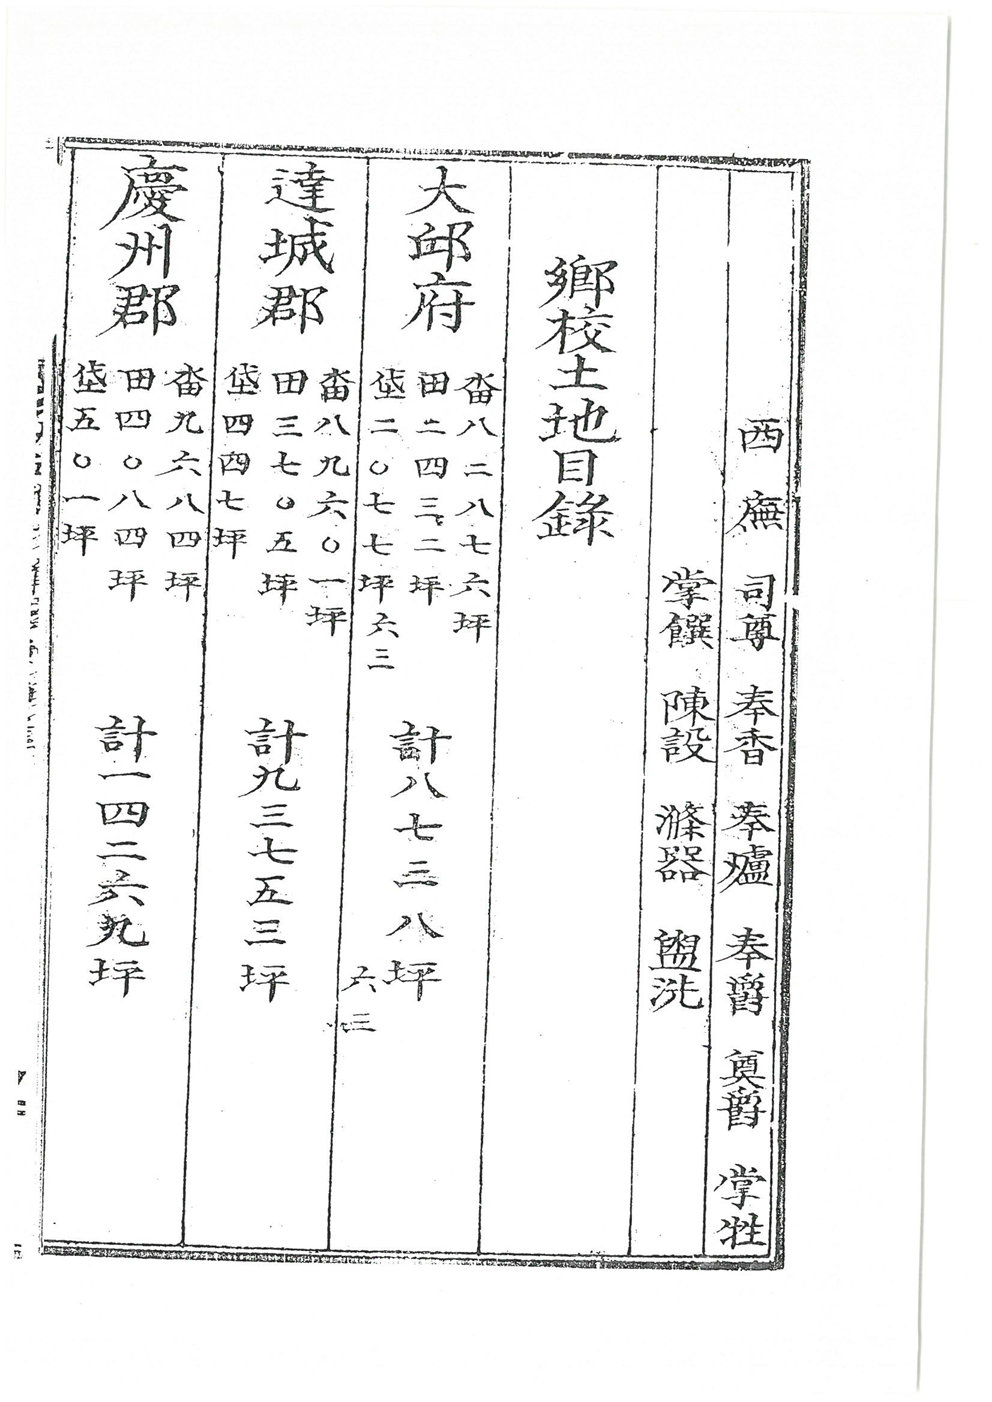 西廡 司尊 奉香 奉爐 奉爵 奠爵 掌牲
掌饌 陳設 滌器 盥洗
鄕校土地目錄
大邱府
畓八二八七六坪
田二四三二坪
垈二〇七七坪六三
計八七三八坪六三
達城郡
畓八九六〇一坪
田三七〇五坪
垈四四七坪
計九三七五三坪
慶州郡
畓九六八四坪
田四〇八四坪
垈五〇一坪
計一四二六九坪